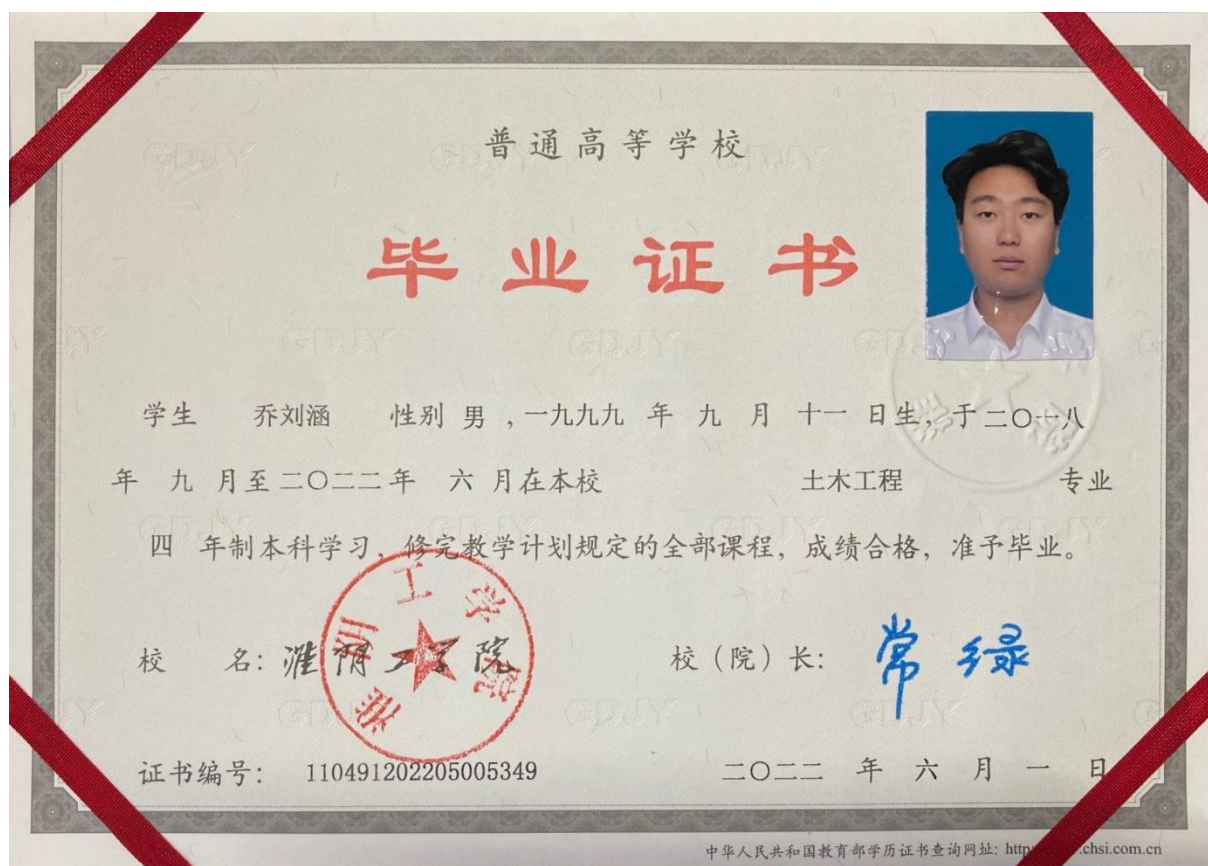 普通高等学校
毕业证书
学生 乔刘涵 性别 男 ,一九九九 年 九 月 十一 日生,于二〇一八
年 九 月至二〇二二年 六 月在本校 土木工程 专业
四 年制本科学习，修完教学计划规定的全部课程，成绩合格，准予毕业。
校 名：淮阴工学院
淮阴工学院
校（院）长：常绿
证书编号： 110491202205005349
二〇二二 年 六 月 一 日
中华人民共和国教育部学历证书查询网址：http chsi.com.cn
GDJY